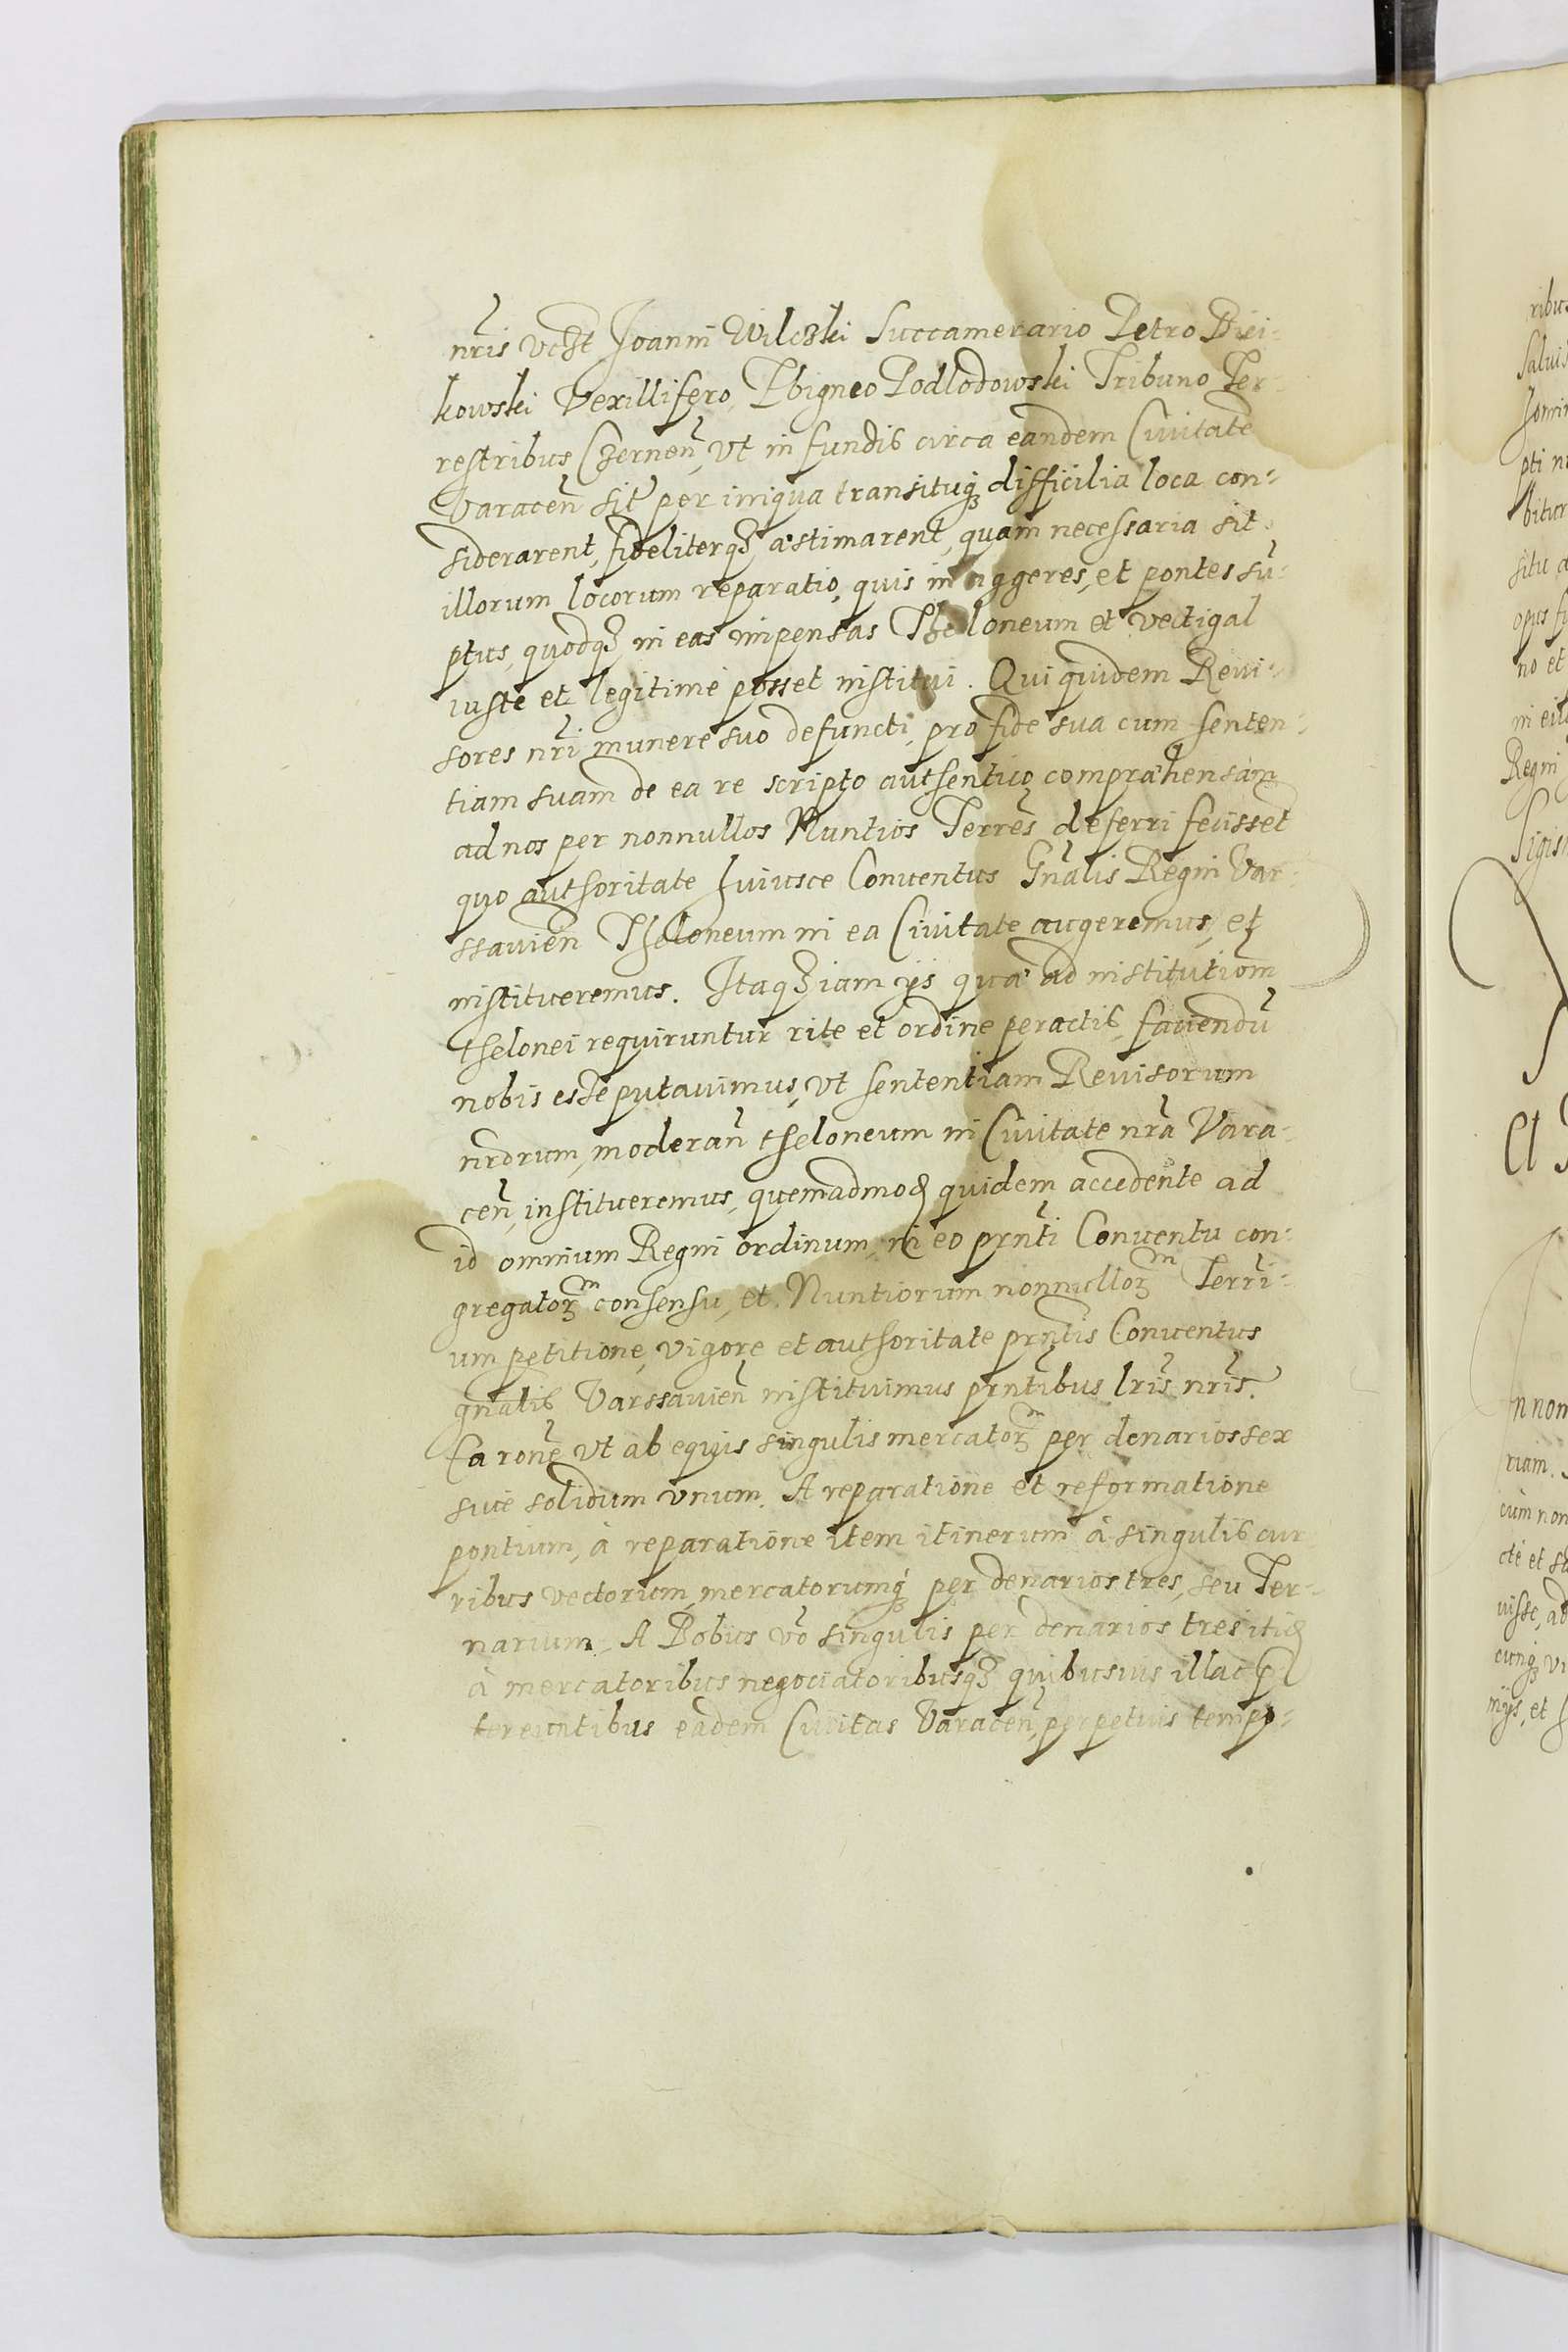 nr̃is vczt Joanni Wilczki Succamerario Petro Biei-
kowski Vexillifero, Sbigneo Podlodowski Tribuno Ter-
restribus Czernen̄, vt in fundis circa eandem Ciuitatē
Varacen̄ sit per iniqua transituq3 difficilia loca con-
siderarent, fideliterq3 æstimarent, quam necessaria sit
illorum locorum reparatio, quis in aggeres, et pontes sũ-
ptus, quodq3 in eas impensas Theloneum et vectigal
iuste et legitime posset institui. Qui quidem Reui-
sores nr̃i munere suo defuncti, pro fide sua cum senten-
tiam suam de ea re scripto authentico compræhensam
ad nos per nonnullos Nuntios Terres̃ deferri fecissent
quo authoritate huiusce Conuentus Gn̄alis Regni Var-
ssauien̄ Theloneum in ea Ciuitate augeremus, et
institueremus. Itaq3 iam ijs quæ ad institutiom̄
thelonei requiruntur rite et ordine peractis, fauendũ
nobis esse putauimus, vt sententiam Reuisorum
nr̄orum, moderan̄ theloneum in Ciuitate nr̃a Vara-
cen̄, institueremus, quemadmod quidem accedente ad
id omnium Regni ordinum, in eo prn̄ti Conuentu con-
gregator3m consensu, et Nuntiorum nonnullor3m Terri-
um petitione, vigore et authoritate prn̄tis Conuentus
gn̄alis Varssauien̄ instituimus prn̄tibus lr̃is nr̃is.
Ea rone vt ab equis singulis mercator3m per denarios sex
siue solidum vnum. A reparatione et reformatione
pontium, à reparatione item itinerum à singulis cur
ribus vectorum, mercatorumq3 per denarios tres, seu Ter-
narium. A Bobus vō singulis per denarios tres itid
à mercatoribus negociatoribusq3 quibusuis illac p̄
tereuntibus eadem Ciuitas Varacen̄, perpetuis tempo-